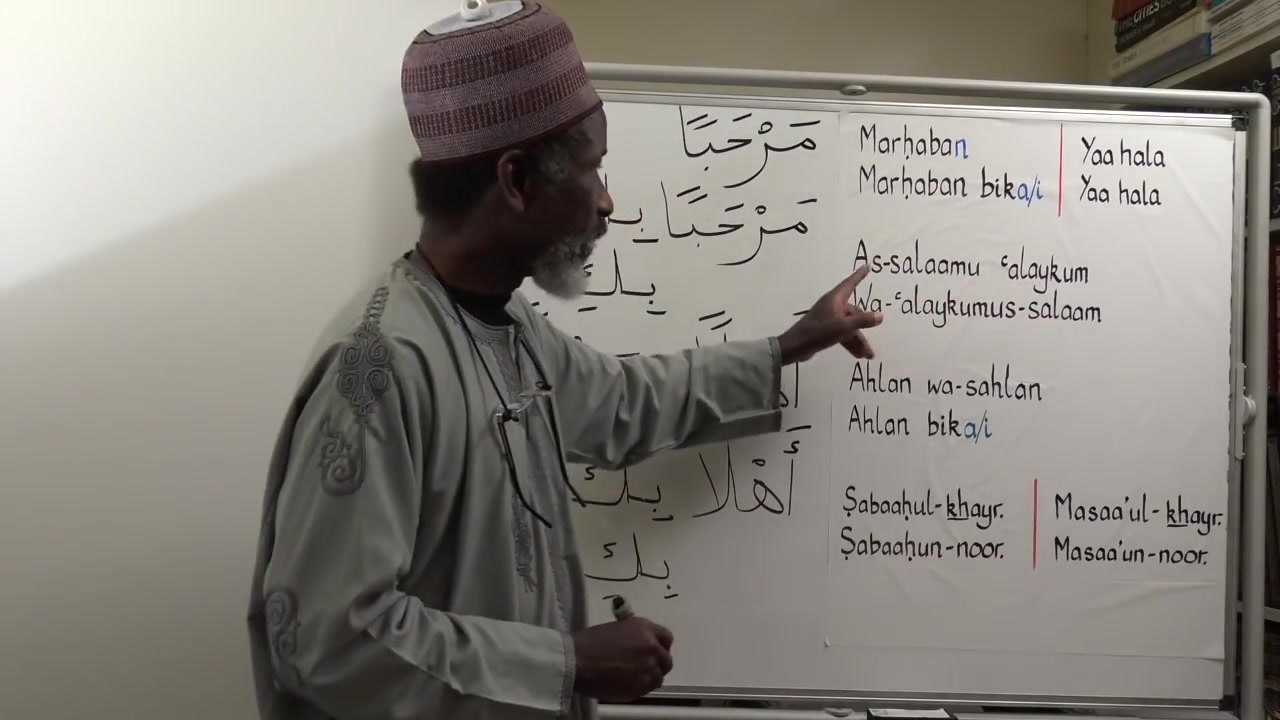 THE CITIES
مَرْحَبًا
مَرْحَبًا
بِكِ
أَهْلًا بِكَ
بِكِ
Marḥaban
Marḥaban bika/i
Yaa hala
Yaa hala
As-salaamu ʿalaykum
Wa-ʿalaykumus-salaam
Ahlan wa-sahlan
Ahlan bika/i
Ṣabaaḥul-khayr.
Ṣabaaḥun-noor.
Masaa'ul-khayr.
Masaa'un-noor.